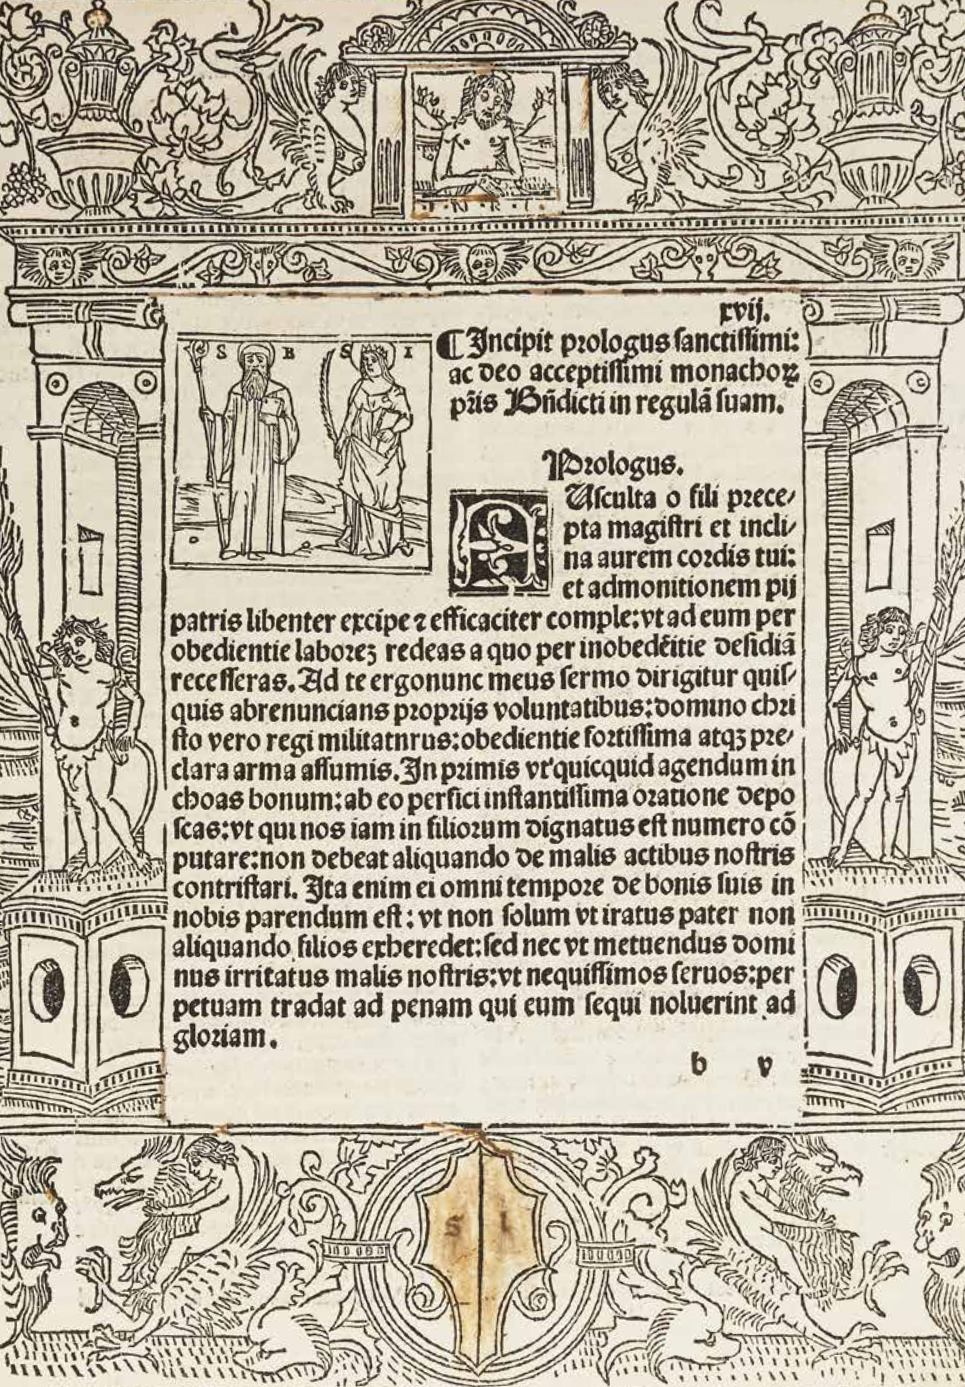 .N.R.I.
xvij.
S B S I
¶Incipit prologus sanctissimi:
ac deo acceptissimi monachoꝝ
pr̃is Bñdicti in regulã suam.
Prologus.
AUsculta o fili prece/
pta magistri et incli/
na aurem cordis tui:
et admonitionem pij
patris libenter excipe ⁊ efficaciter comple:vt ad eum per
obedientie laboreʒ redeas a quo per inobedẽtie desidiã
recesseras.Ad te ergonunc meus sermo dirigitur quis/
quis abrenuncians proprijs voluntatibus:domino chri
sto vero regi militatnrus:obedientie fortissima atqʒ pre/
clara arma assumis.In primis vt quicquid agendum in
choas bonum:ab eo perfici instantissima oratione depo
scas:vt qui nos iam in filiorum dignatus est numero cõ
putare:non debeat aliquando de malis actibus nostris
contristari. Ita enim ei omni tempore de bonis suis in
nobis parendum est: vt non solum vt iratus pater non
aliquando filios exheredet:sed nec vt metuendus domi
nus irritatus malis nostris:vt nequissimos seruos:per
petuam tradat ad penam qui eum sequi noluerint ad
gloriam.
b v
S I